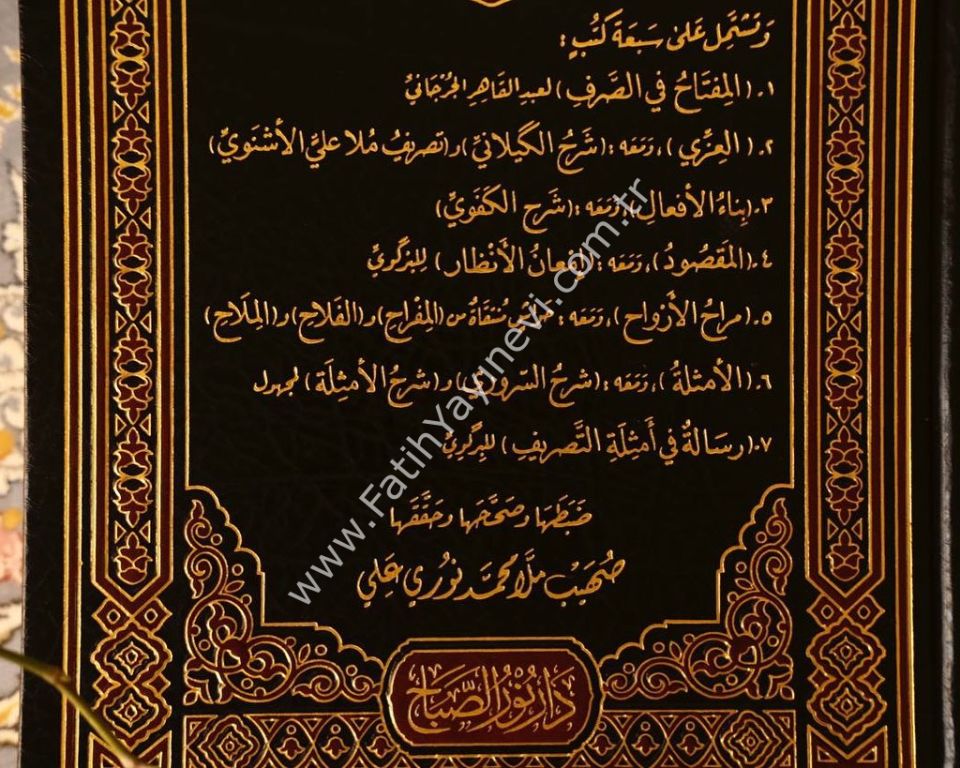 وَتَشتَمِل عَلىٰ سَبعَة كتُبٍ:
١.(المِفتَاحُ في الصَّرفِ) لعبدِ القَاهِرِ الجُرْجَانيِّ
٢.(العِزِّي)، ومَعَه :(شَرحُ الگيلانيِّ) و(تصريفُ مُلا عليٍّ الأشنَويِّ)
٣.(بِناءُ الأفعالِ)، ومَعَه :(شَرح الكَفَويِّ)
٤.(المَقصُودُ)، ومَعَه :(إمْعانُ الأَنْظار) لِلبِرْگِويِّ
٥.(مراحُ الأَرْواح)، ومَعَه : مُنتَقاةٌ من (المِفْراحِ) و(الفَلاحِ) و(المِلَاحِ)
٦.(الأمثلةُ)، ومَعَه :(شرحُ السّروريِّ) و(شرحُ الأمثِلَة) لمجهول
٧.(رسَالةٌ في أَمثِلَةِ التَّصريفِ) للبِرْگِويِّ
ضَبَطَها وصَحَّحَها وحَقَّقَها
صُهَيبْ ملَّا محمَّد نوُري عَلي
دَارُ نُورِ الصَّبَاحِ
www.FatihYayinevi.com.tr